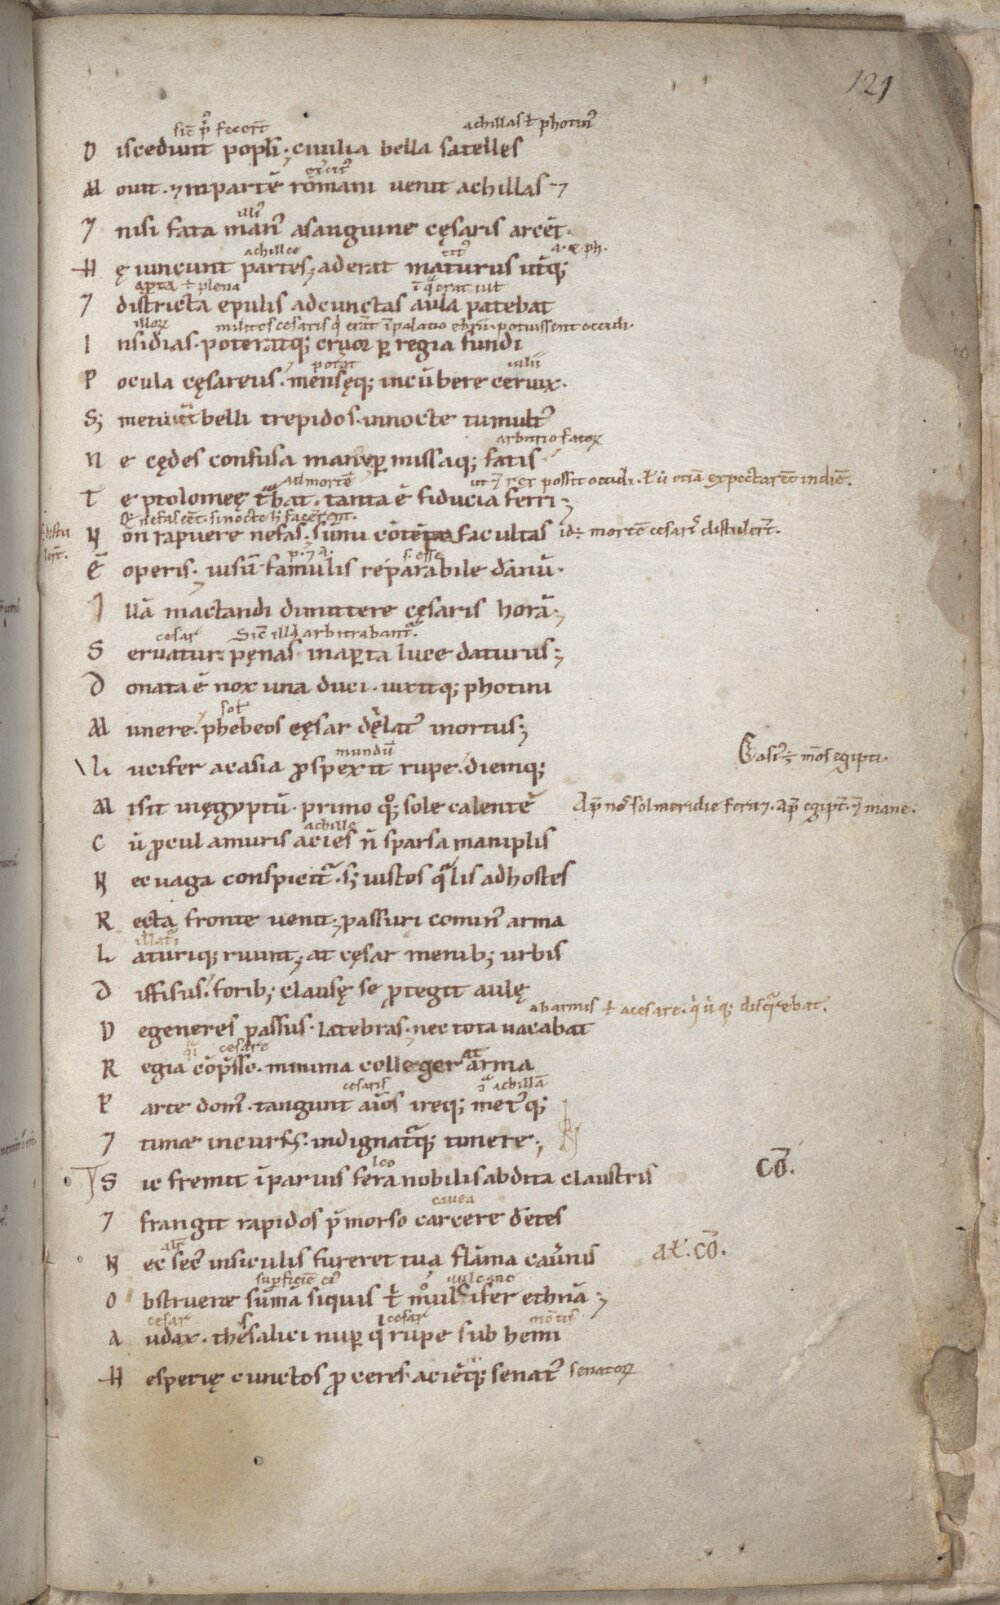 121
sic p᷑ fecert̄ achillas ł photin᷑
D iscedunt popli. ciuilia bella satelles
M ouit. ⁊ inpartē romani uenit achillas
⁊ nisi fata man᷑ asanguine cęsaris arcēt.
achille
H ę uincunt partes; aderat maturus uterq;
aꝑta ł plena
⁊ districta epulis adcunctas aula patebat
illoꝝ milites cesaris q̇ erāt ī palatio ebrii. potuissent occidi.
I nsidias. poteratq; cruor ꝑ regia fundi
P ocula cęsareus. mensęq; incūbere ceruix.
S; metuūt belli trepidos. innocte tumult᷑
arbitrio fatoꝝ
N e cędes confusa manu ꝑmissaq; fatis
ad mortē
T e ptolomeę t᷑hat. tanta ē fiducia ferri;
N on rapuere nefas. sūmi facultas id÷ mortē cesaris distulert̄.
Ē operis. uisū famulis reparabile dānū.
s. esse
I llā mactandi dimittere cęsaris horā;
cesar Sic̄ illi arbitrabant᷑.
S eruatur pęnas inaꝑta luce daturus;
D onata ē nox una duci. uixitq; photini
sol
M unere. phebeos cęsar dēlat᷑ inortus;
mundū
L ucifer acasia ꝓspexit rupe. diemq; Casi᷑÷ mōs egipti.
M isit inęgyptū. primo qq; sole calentē
achille
C ū ꝓcul amuris acies n̄ sparsa maniplis
N ec uaga conspicit᷑. s; iustos q̄lis adhostes
R ecta fronte uenit; passuri comin᷑ arma
illat᷑i
L aturiq; ruunt; at cęsar menib; urbis
D iffisus. forib; clausę se ꝓtegit aulę
D egeneres passus. latebras. nec tota uacabat
cesare
R egia cōp̄sso. minima collegerat arma
cesaris achillā
P arte dom᷑. tangunt aīos ireq; met᷑q;
⁊ timet incurs᷑. indignat᷑q; timere;
leo
S ic fremit ī paruis fera nobilis abdita claustris CŌ.
cauea
⁊ frangit rapidos p̄morso carcere dētes
N ec sec᷑ insiculis fureret tua flāma cauernis Ał. CŌ.
suꝑficiē ei᷑ uulcane
O bstrueret sūmā siquis t᷑ mulcifer ethnā;
cesar cesar mōtis
A udax. thesalici nuꝑ q̇ rupe sub hemi
H esperię cunctos ꝓceres. aciēq; senat᷑ senatoꝝ